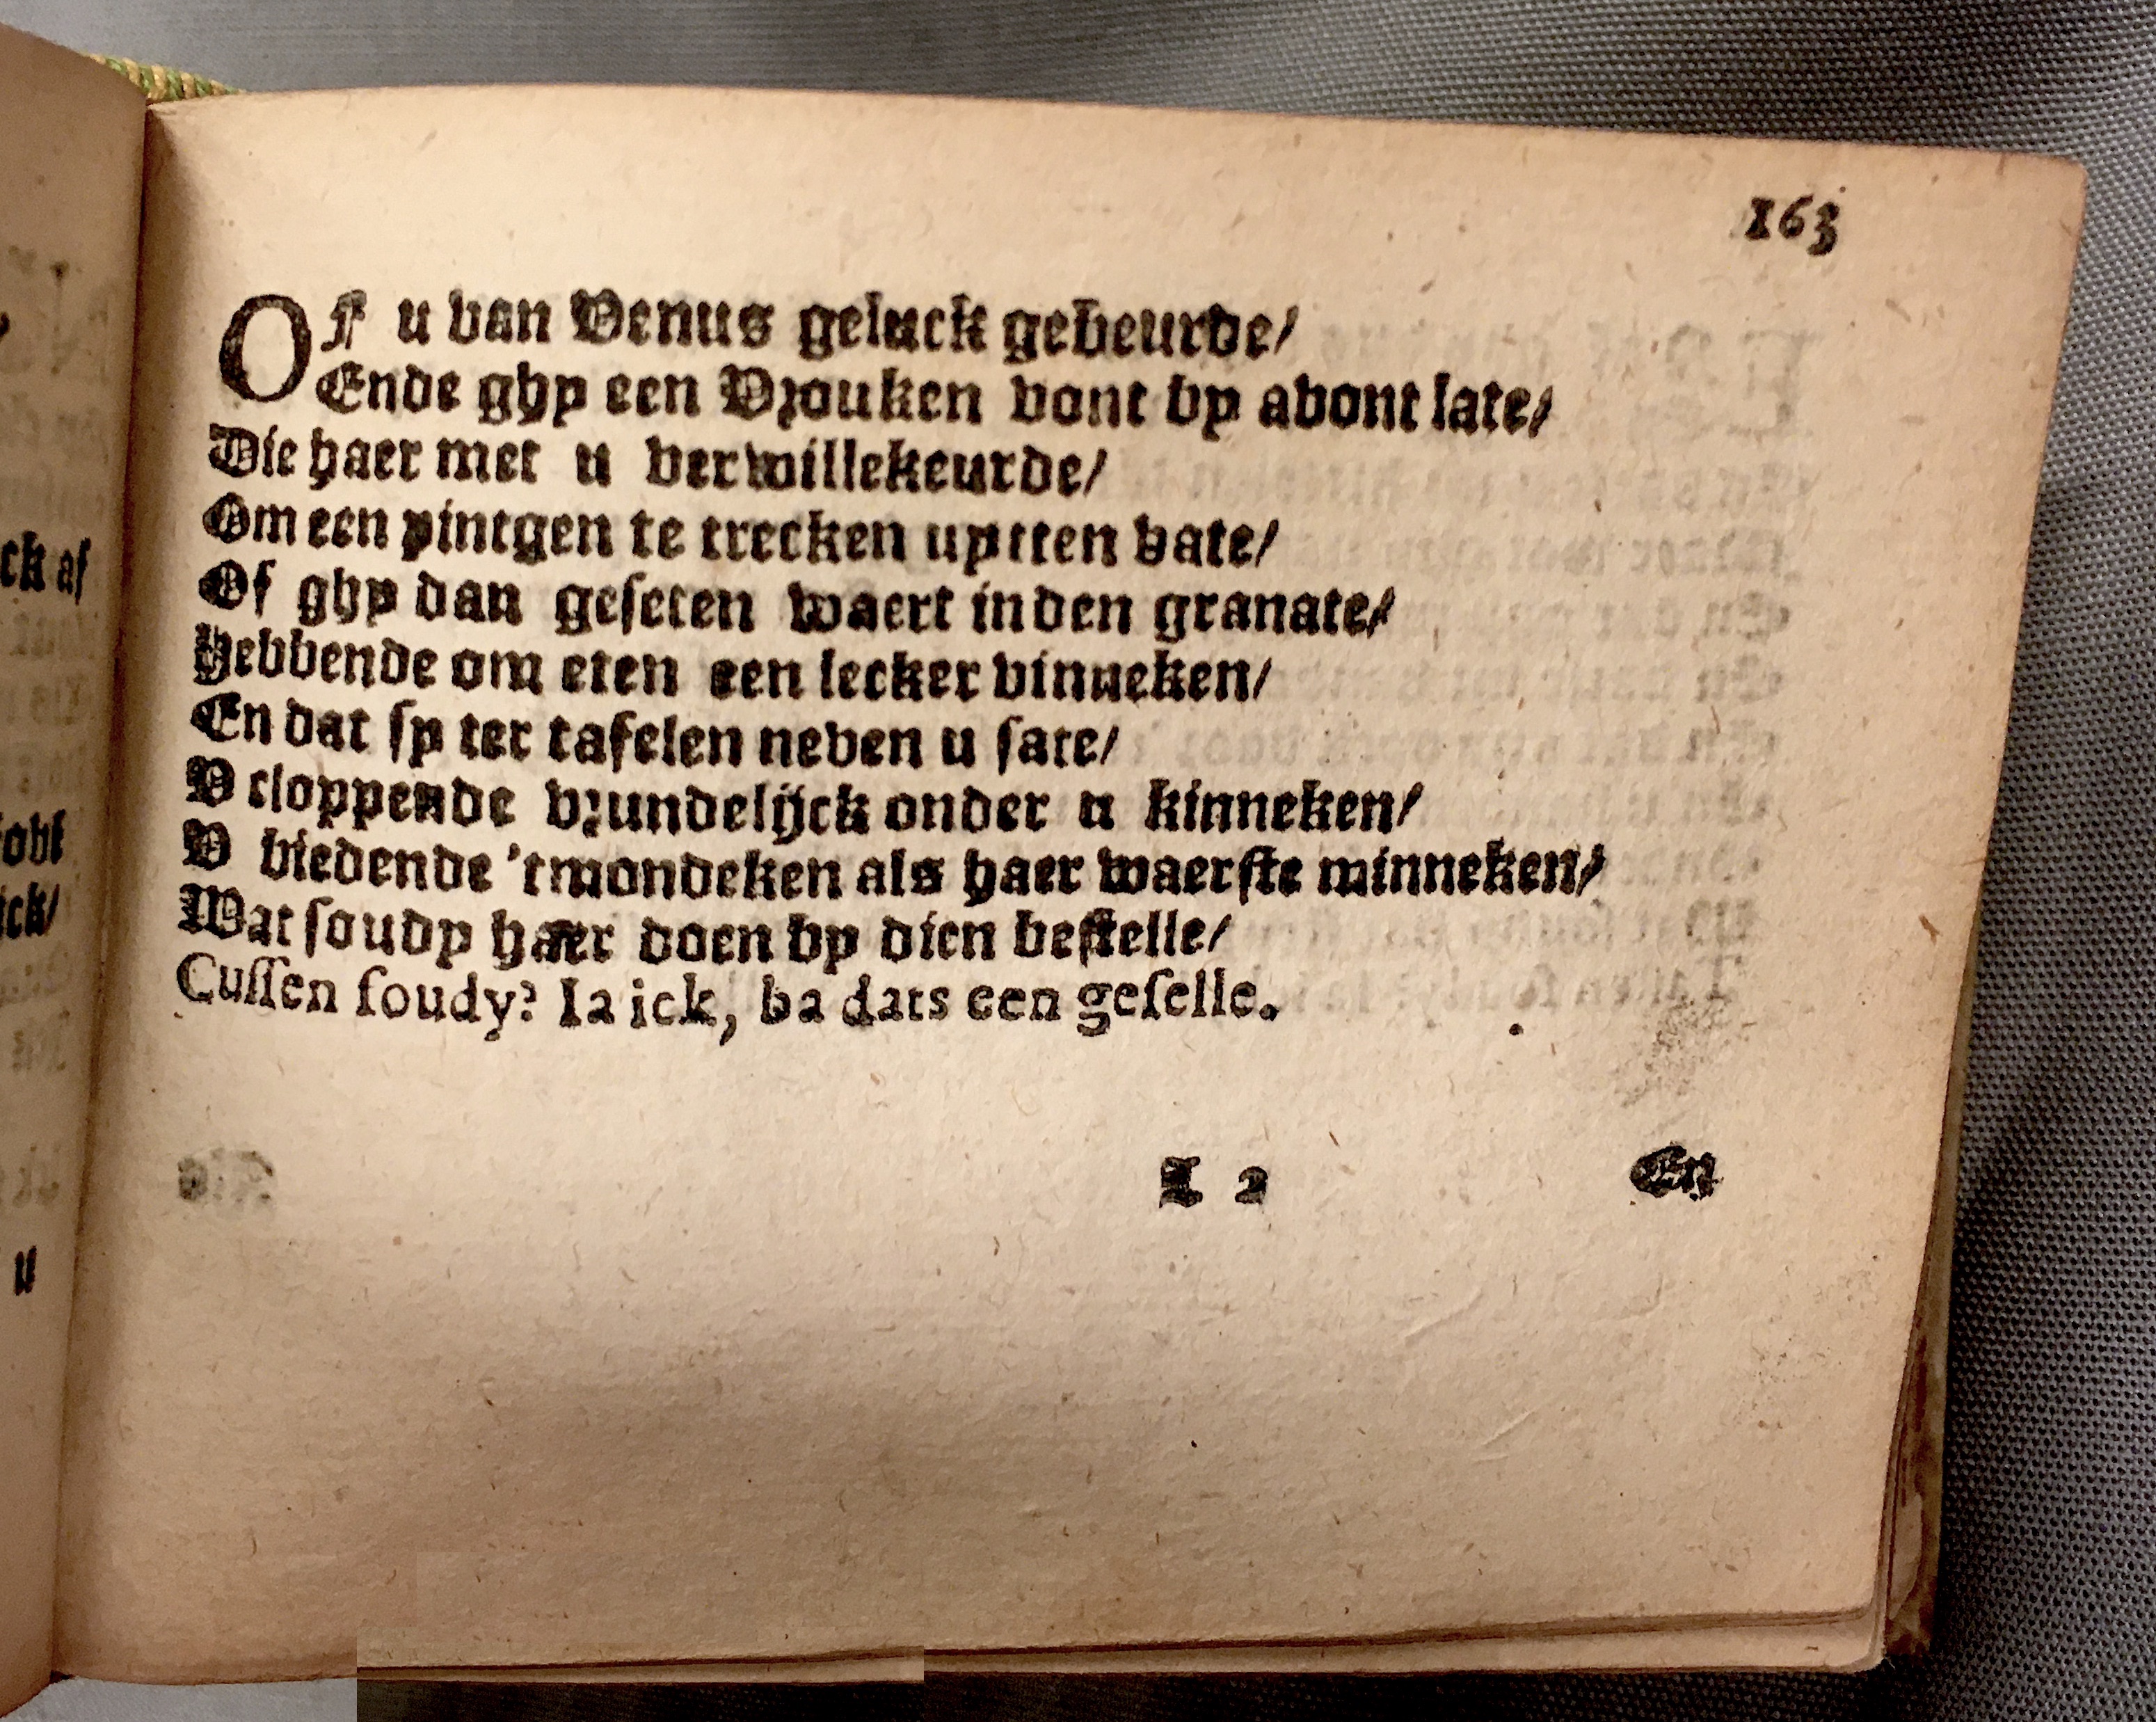 163
Of u van Venus geluck gebeurde/
Ende ghy een Vrouken vont by avont late/
Die haer met u verwillekeurde/
Om een pintgen te trecken uptten vate/
Of ghy dan geseten waert inden granate/
Hebbende om eten een lecker vinneken/
En dat sy ter tafelen neven u sate/
V cloppende vrundelijck onder u kinneken/
V biedende 'tmondeken als haer waerste minneken/
Wat soudy haer doen by dien bestelle/
Cussen soudy? Ia ick, ba dats een geselle.
L 2 En
ck
u